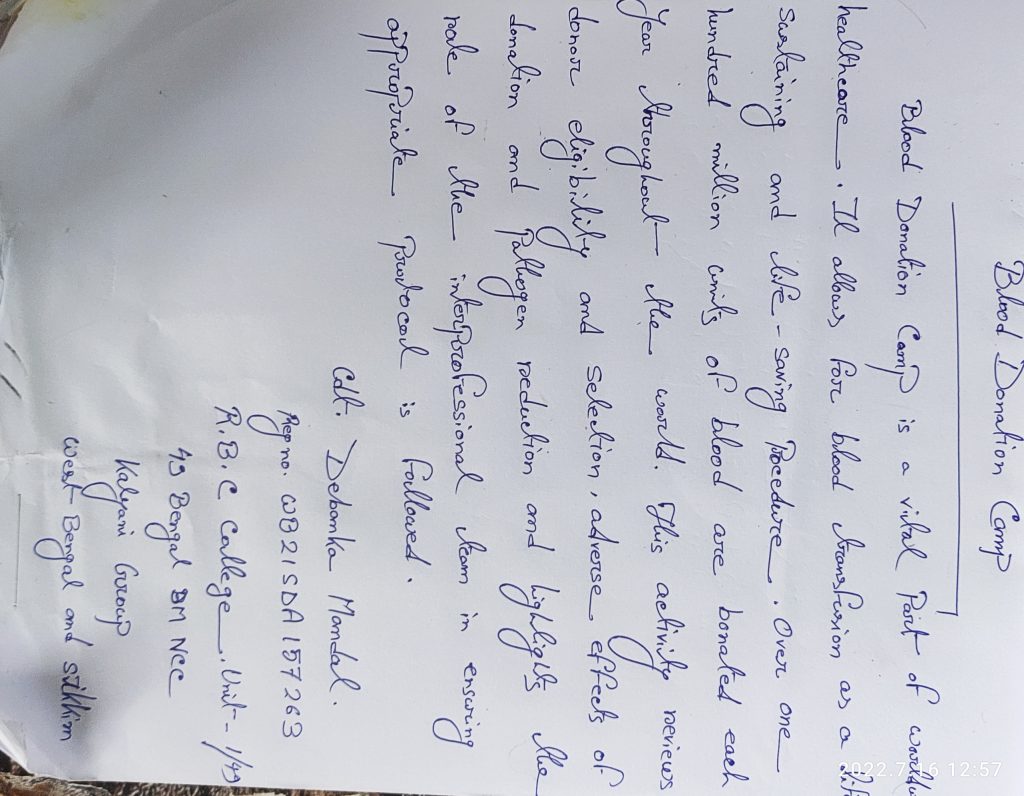 Blood Donation Camp
Blood Donation Camp is a vital Part of
healthcare. It allows for blood transfusion as a
sustaining and life-saving Procedure. Over one
hundred million units of blood are bonated each
Year throughout the world. This activity reviews
donor eligibility and selection, adverse effects of
donation and Pathogen reduction and highlights the
role of the interprofessional team in ensuring
appropriate Protocol is followed.
Cdt. Debanka Mandal.
Reg no. WB21SDA157263
R.B.C College, Unit-1/49
49 Bengal BN NCC
Kalyani Group
West-Bengal and sikkim
2022.7.16 12:57